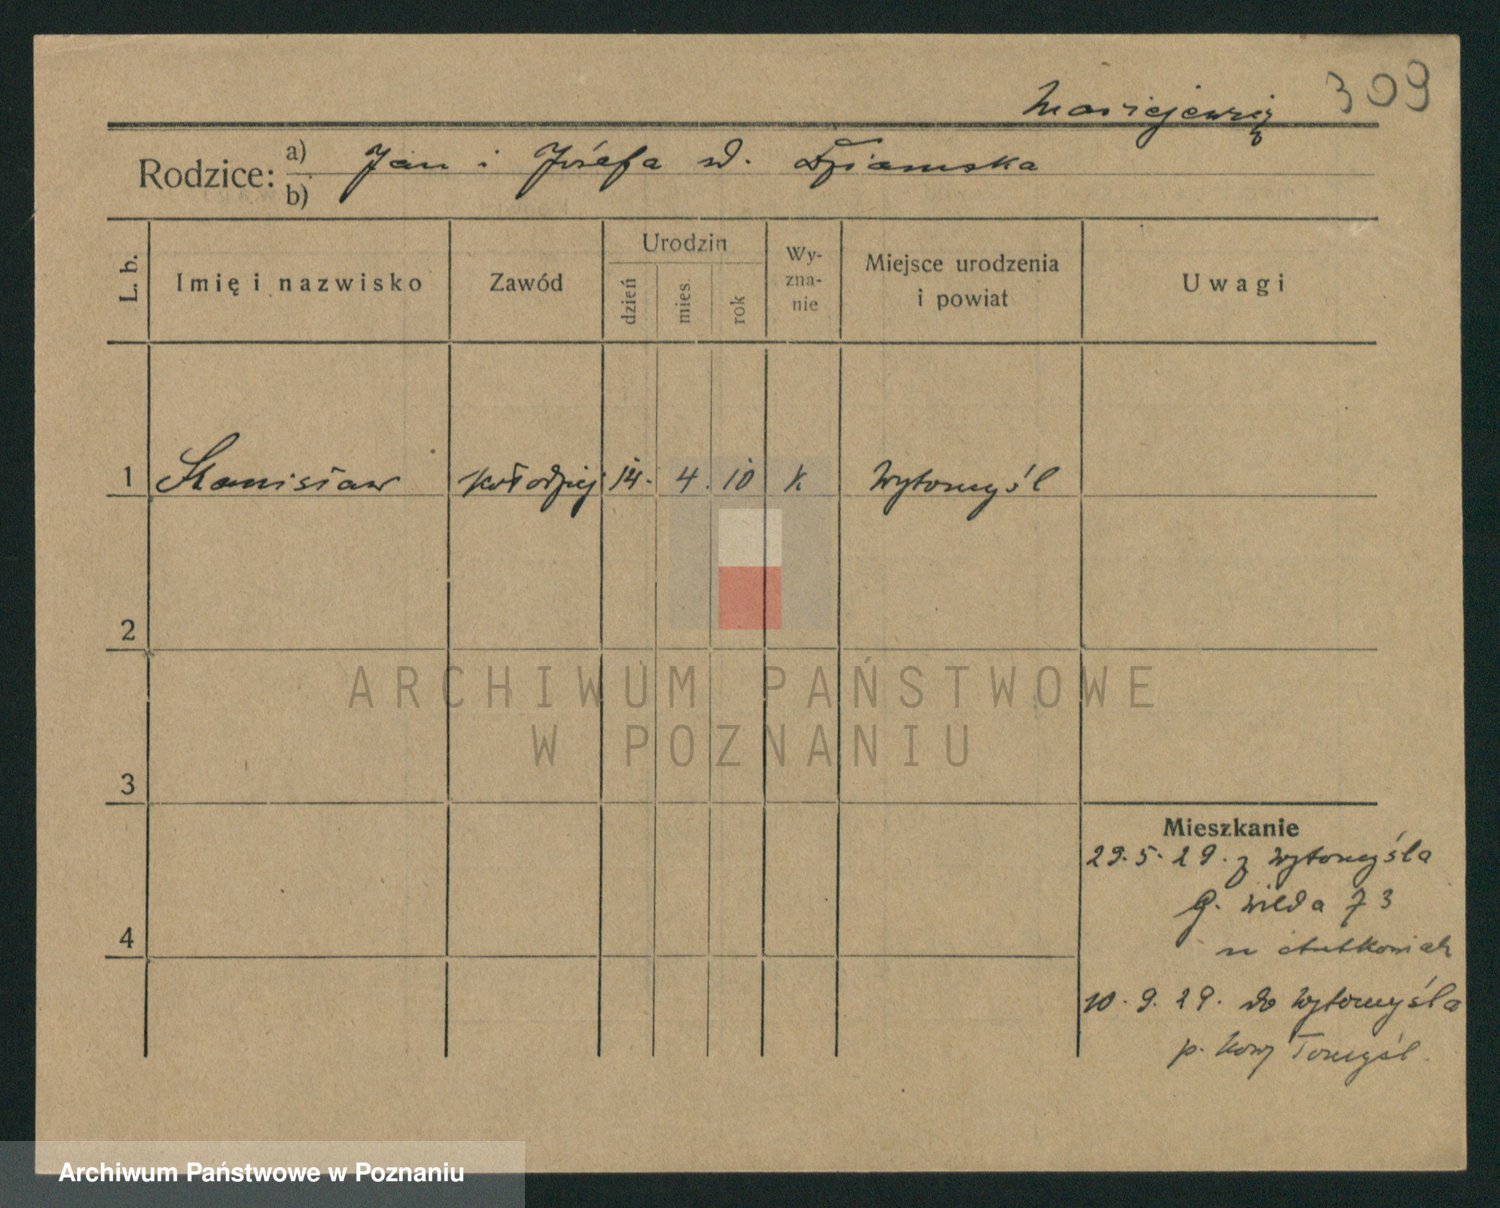 309
Rodzice: a) Jan i Józefa zd. Dziamska
b)
L. b.
Imię i nazwisko
Zawód
Urodzin
dzień
mies.
rok
Wy-
zna-
nie
Miejsce urodzenia
i powiat
Uwagi
1 Stanisław kołodziej 14. 4. 10 k. Wytomyśl
2
3
4
Mieszkanie
29. 5. 29. z Wytomyśla
G. Wilda 73
10. 9. 29. do Wytomyśla
p. Nowy Tomyśl.
ARCHIWUM PAŃSTWOWE
W POZNANIU
Archiwum Państwowe w Poznaniu